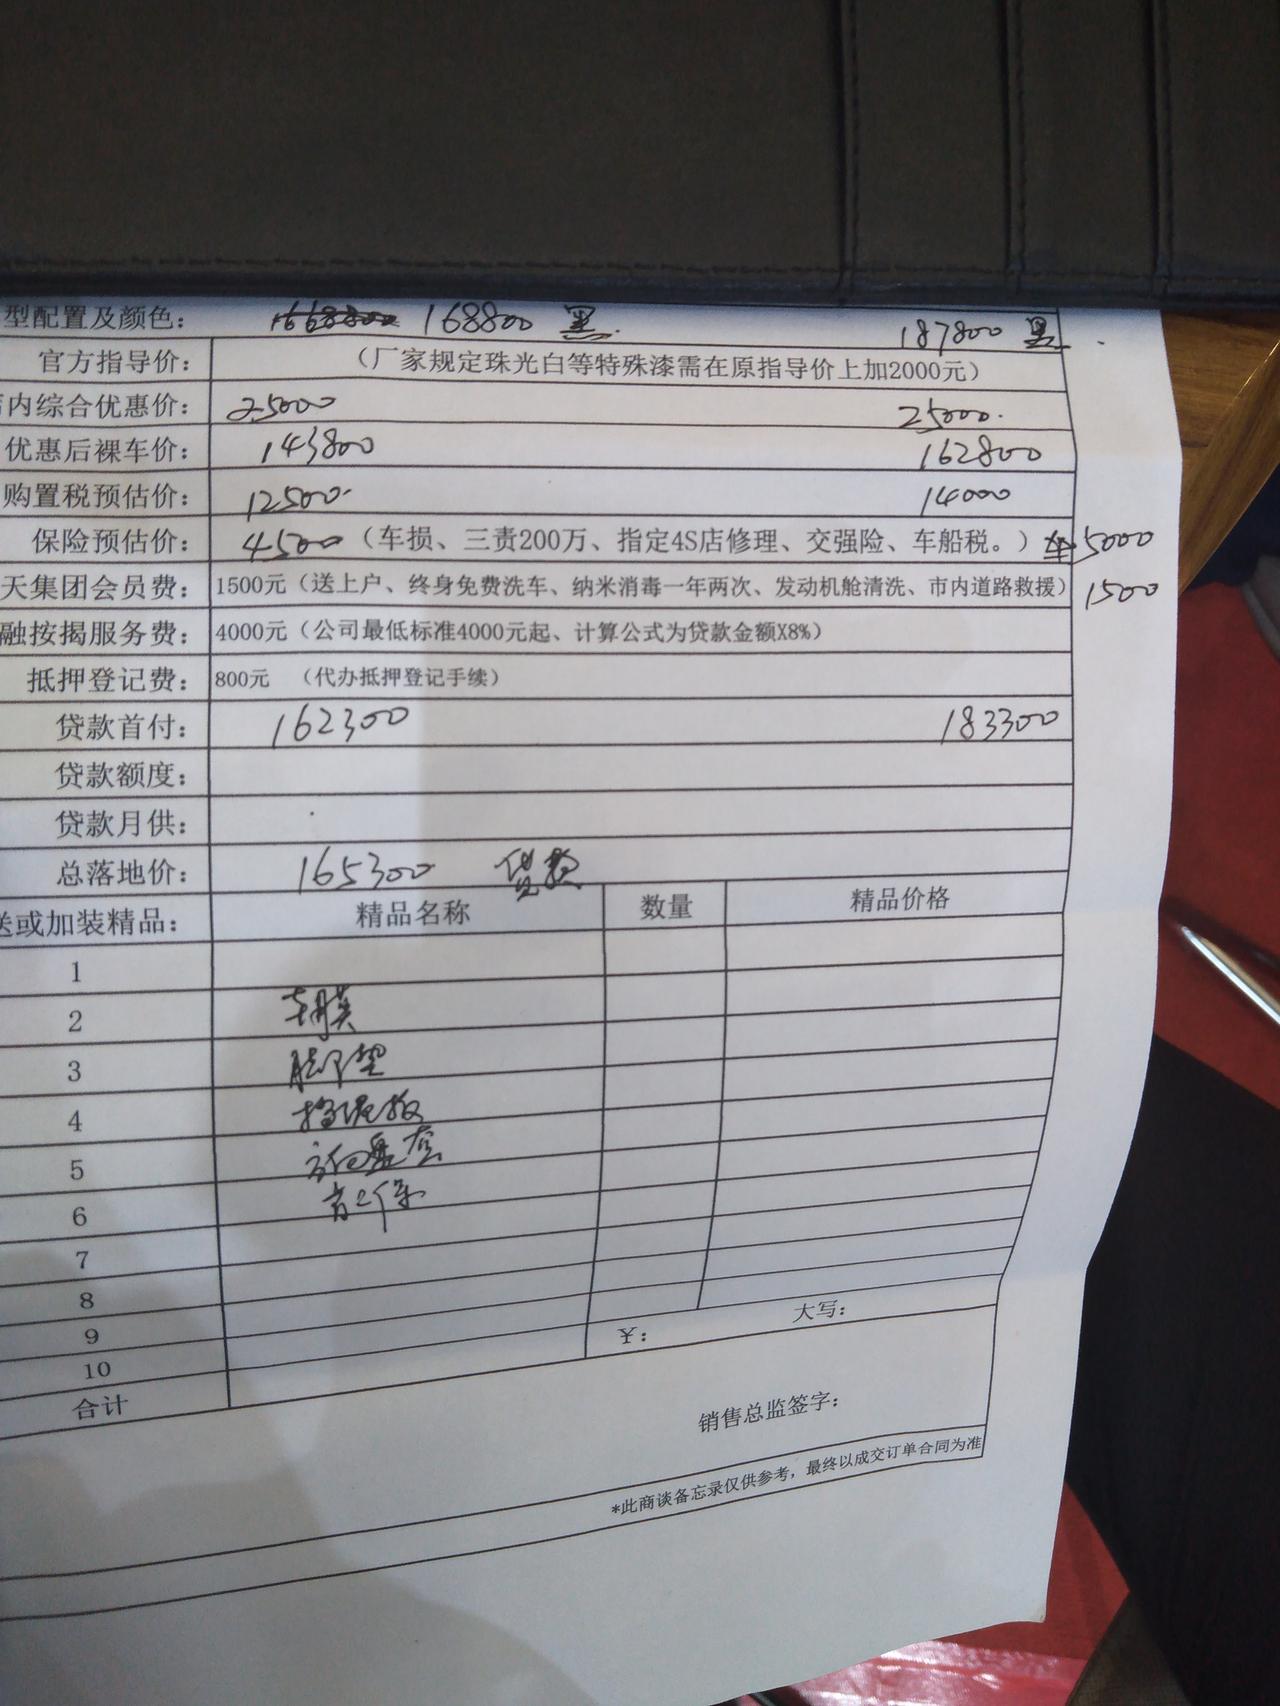 型配置及颜色： 168800 黑. 187800 黑.
官方指导价： （厂家规定珠光白等特殊漆需在原指导价上加2000元）
内综合优惠价： 25000 25000.
优惠后裸车价： 143800 162800
购置税预估价： 12500. 14000
保险预估价： 4500 （车损、三责200万、指定4S店修理、交强险、车船税。） 5000
天集团会员费： 1500元（送上户、终身免费洗车、纳米消毒一年两次、发动机舱清洗、市内道路救援） 1500
融按揭服务费： 4000元（公司最低标准4000元起、计算公式为贷款金额X8%）
抵押登记费： 800元 （代办抵押登记手续）
贷款首付： 162300 183300
贷款额度：
贷款月供：
总落地价： 165300 贷款
送或加装精品： 精品名称 数量 精品价格
1
2 车膜
3 脚垫
4 挡泥板
5 方向盘套
6
7
8
9
10
合计 ¥： 大写：
销售总监签字：
*此商谈备忘录仅供参考，最终以成交订单合同为准